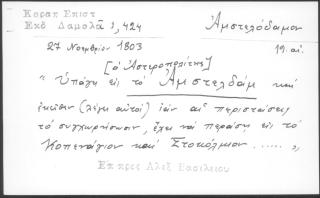 Κοραή Επιστ
Εκδ Δαμαλᾶ 1, 424
Ἀμστελόδαμον
27 Νοεμβρίου 1803
19. αἰ.
[ὁ Ἀστεροπερίτης]
"Ὑπάγει εἰς τὸ Ἀμστελδὰμ καὶ
ἐκεῖθεν (λέγει αὐτοί) ἐὰν αἱ περιστάσεις
τὸ συγχωρήσωσιν, ἔχει νὰ περάσῃ εἰς τὸ
Κοπενάγιον καὶ Στοκόλμιον ..... "
Επ προς Αλεξ Βασιλειου